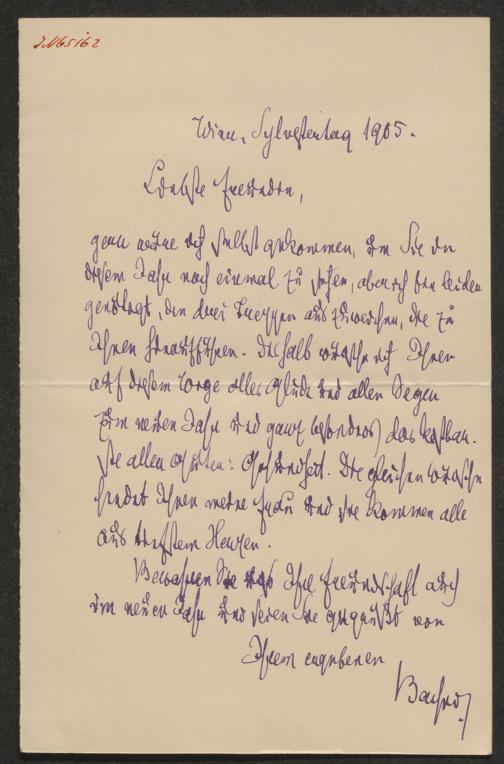 JN65162
Wien, Sylvestertag 1905.
Liebste Freundin,
gern wäre ich selbst gekommen, um Sie in
diesem Jahr noch einmal zu sehen, aber ich bin leider
genötigt, den drei Treppen auszuweichen, die zu
Ihnen hinaufführen. Deshalb wünsche ich Ihnen
auf diesem Wege alles Glück und allen Segen
zum neuen Jahr und ganz besonders das kostbar-
ste allen Güter: Gesundheit. Die gleichen Wünsche
sendet Ihnen meine Frau und sie kommen alle
aus tiefstem Herzen.
Bewahren Sie uns Ihre Freundschaft auch
im neuen Jahr und seien Sie gegrüßt von
Ihrem ergebenen